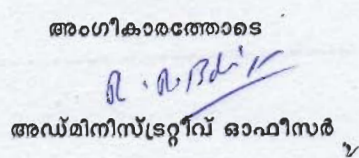 അംഗീകാരത്തോടെ
അഡ്മിനിസ്ട്രറ്റീവ് ഓഫീസർ